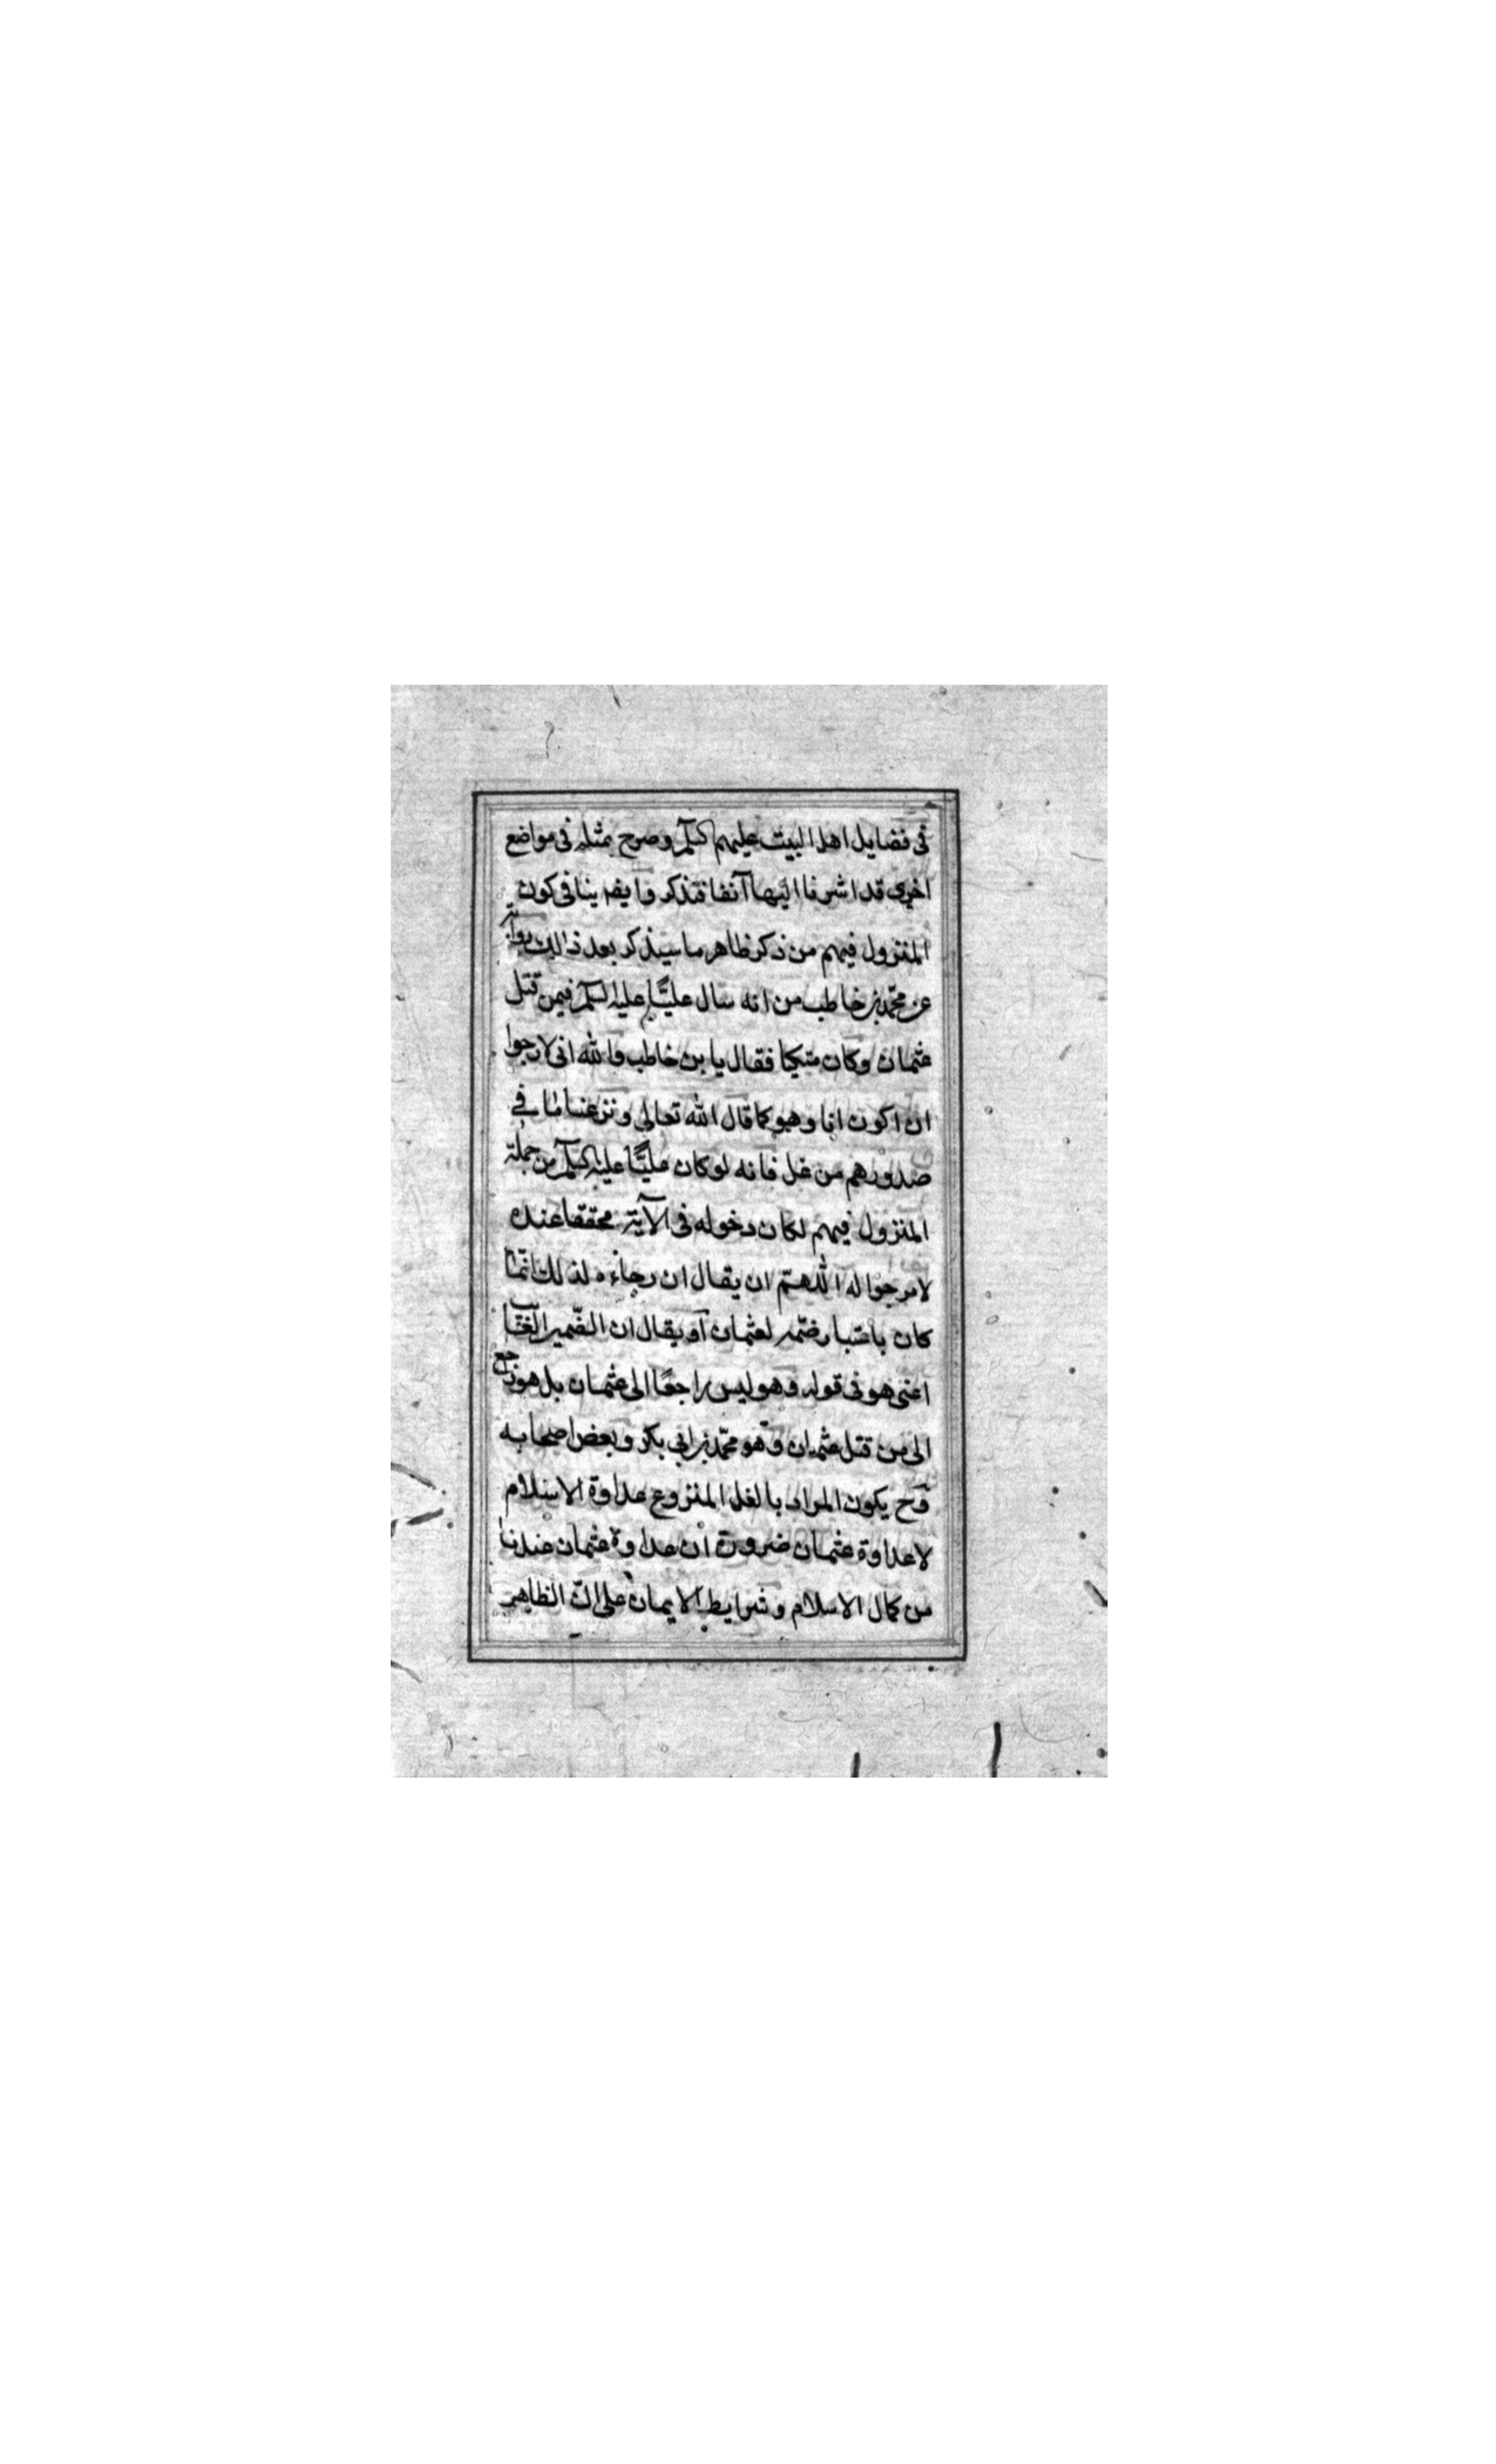 فى فضايل اهل البيت عليهم السلم وصرح بمثله فى مواضع
اخرى قد اشرنا اليها آنفا فتذكر وايضا ينافى كون
المنزول فيهم من ذكر ظاهر ما سيذكر بعد ذالك رواية
عن محمد بن خاطب من انه سال عليًّا عليه السلم فيمن قتل
عثمان وكان متكيا فقال يا بن خاطب والله انى لارجوا
ان اكون انا وهو كما قال الله تعالى ونزعنا ما في
صدورهم من غل فانه لو كان عليًّا عليه السلم من جملة
المنزول فيهم لكان دخوله فى الآية محققا عنده
لا مرجوا له اللهمّ ان يقال ان رجاءه لذلك انمّا
كان باعتبار ضمّه لعثمان أو يقال ان الضّمير الغايب
اعنى هو فى قوله وهو ليس راجعًا الى عثمان بل هو راجع
الى من قتل عثمان وهو محمّد بن ابى بكر وبعض اصحابه
وح يكون المراد بالغل المنزوع عداوة الاسلام
لا عداوة عثمان ضرورة ان عداوة عثمان عندنا
من كمال الاسلام وشرايط الايمان على انّ الظاهر